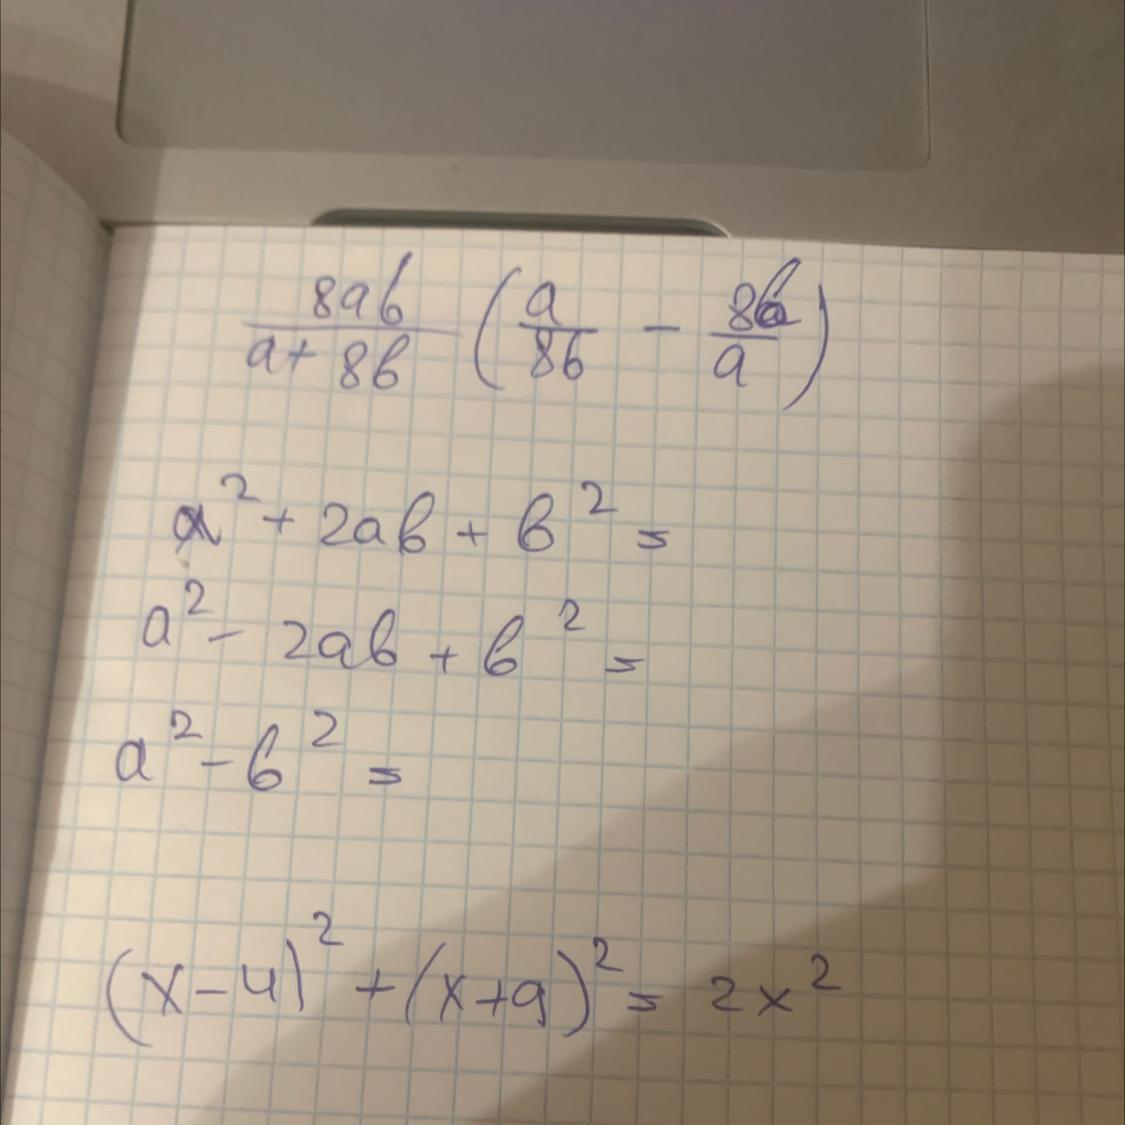 8ab/(a+8b) (a/8b - 8b/a)
a² + 2ab + b² =
a² - 2ab + b² =
a² - b² =
(x-4)² + (x+9)² = 2x²